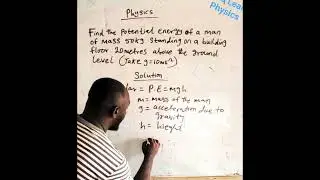 Physics
Find the potential energy of a man
of mass 50kg standing on a building
floor 20metres above the ground
level (Take g=10ms⁻²)
Solution
P.E = mgh
m = mass of the man
g = acceleration due to
gravity
h = height
Physics